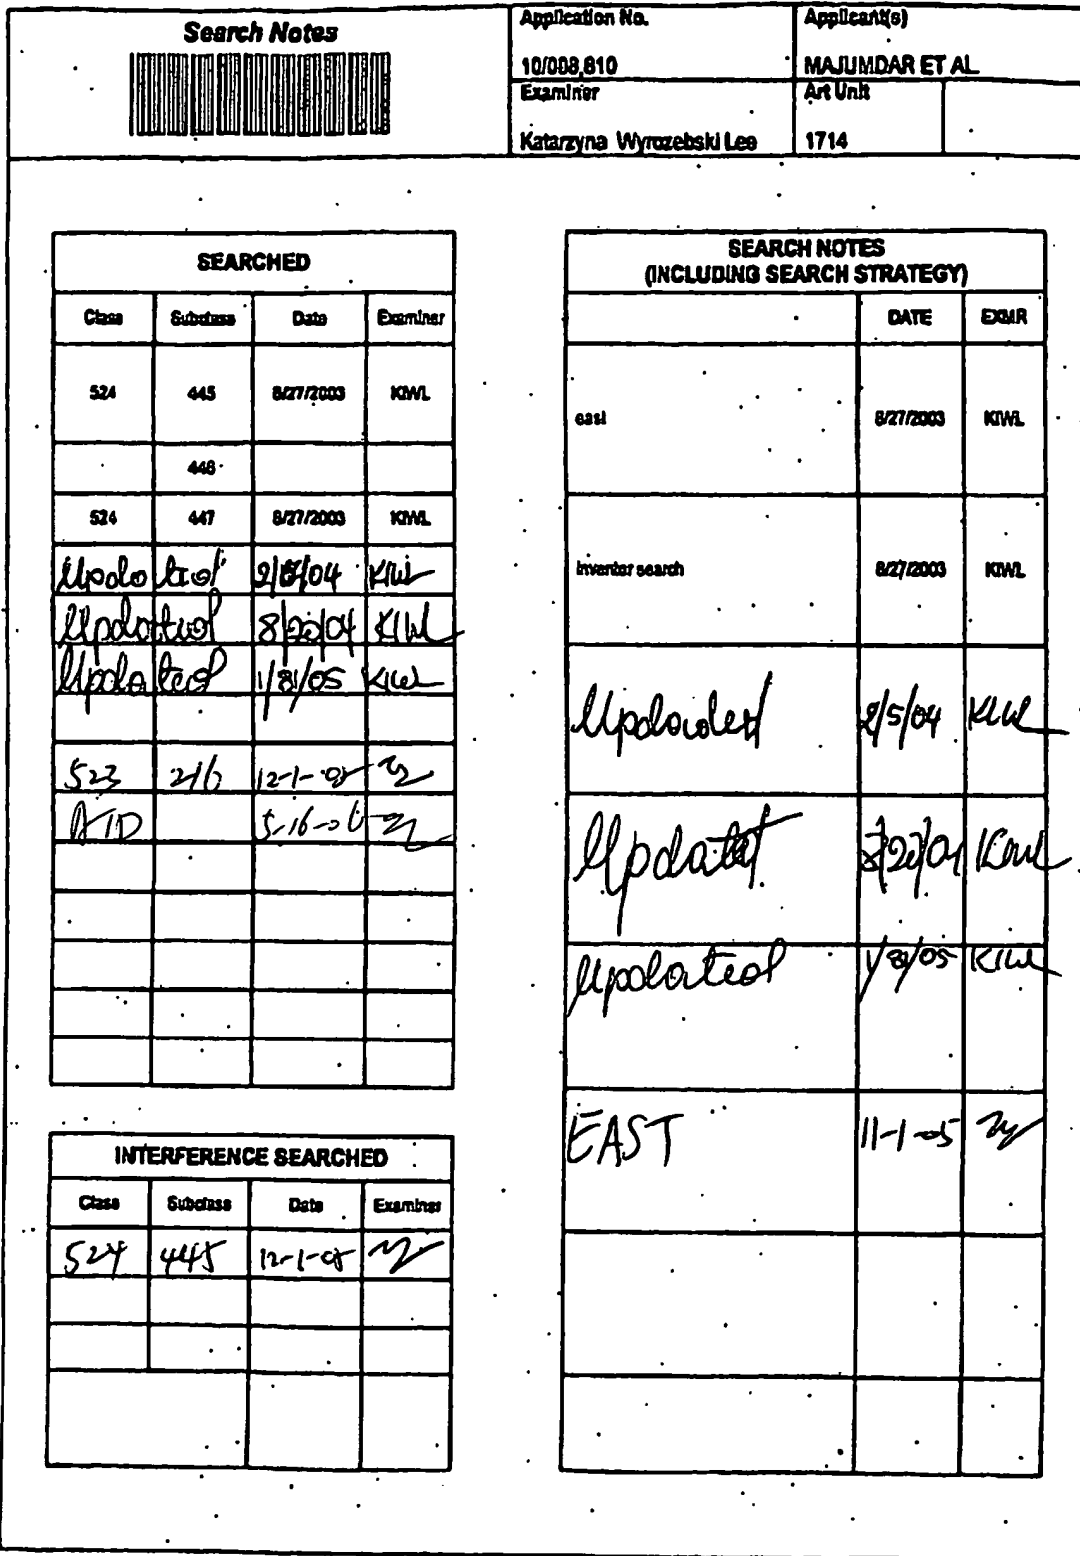 Search Notes
Application No.
Applicant(s)
10/008,810
MAJUMDAR ET AL
Examiner
Art Unit
Katarzyna Wyrozebski Lee
1714
SEARCHED
Class Subclass Date Examiner
524 445 8/27/2003 KIWL
446
524 447 8/27/2003 KIWL
Updated 2/5/04 KIWL
Updated 8/22/04 KIWL
Updated KIWL
523 216 12-1-05
5-16-06
INTERFERENCE SEARCHED
Class Subclass Date Examiner
524 445 12-1-05
SEARCH NOTES
(INCLUDING SEARCH STRATEGY)
DATE EXMR
east 8/27/2003 KIWL
inventor search 8/27/2003 KIWL
Updated 2/5/04 KIWL
Updated 8/22/04 KIWL
Updated KIWL
EAST 11-1-05